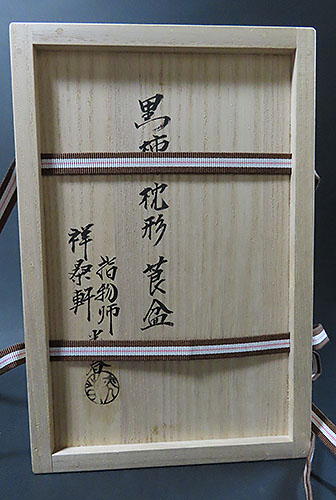 黒柿枕形 莨盆
指物師
祥桑軒